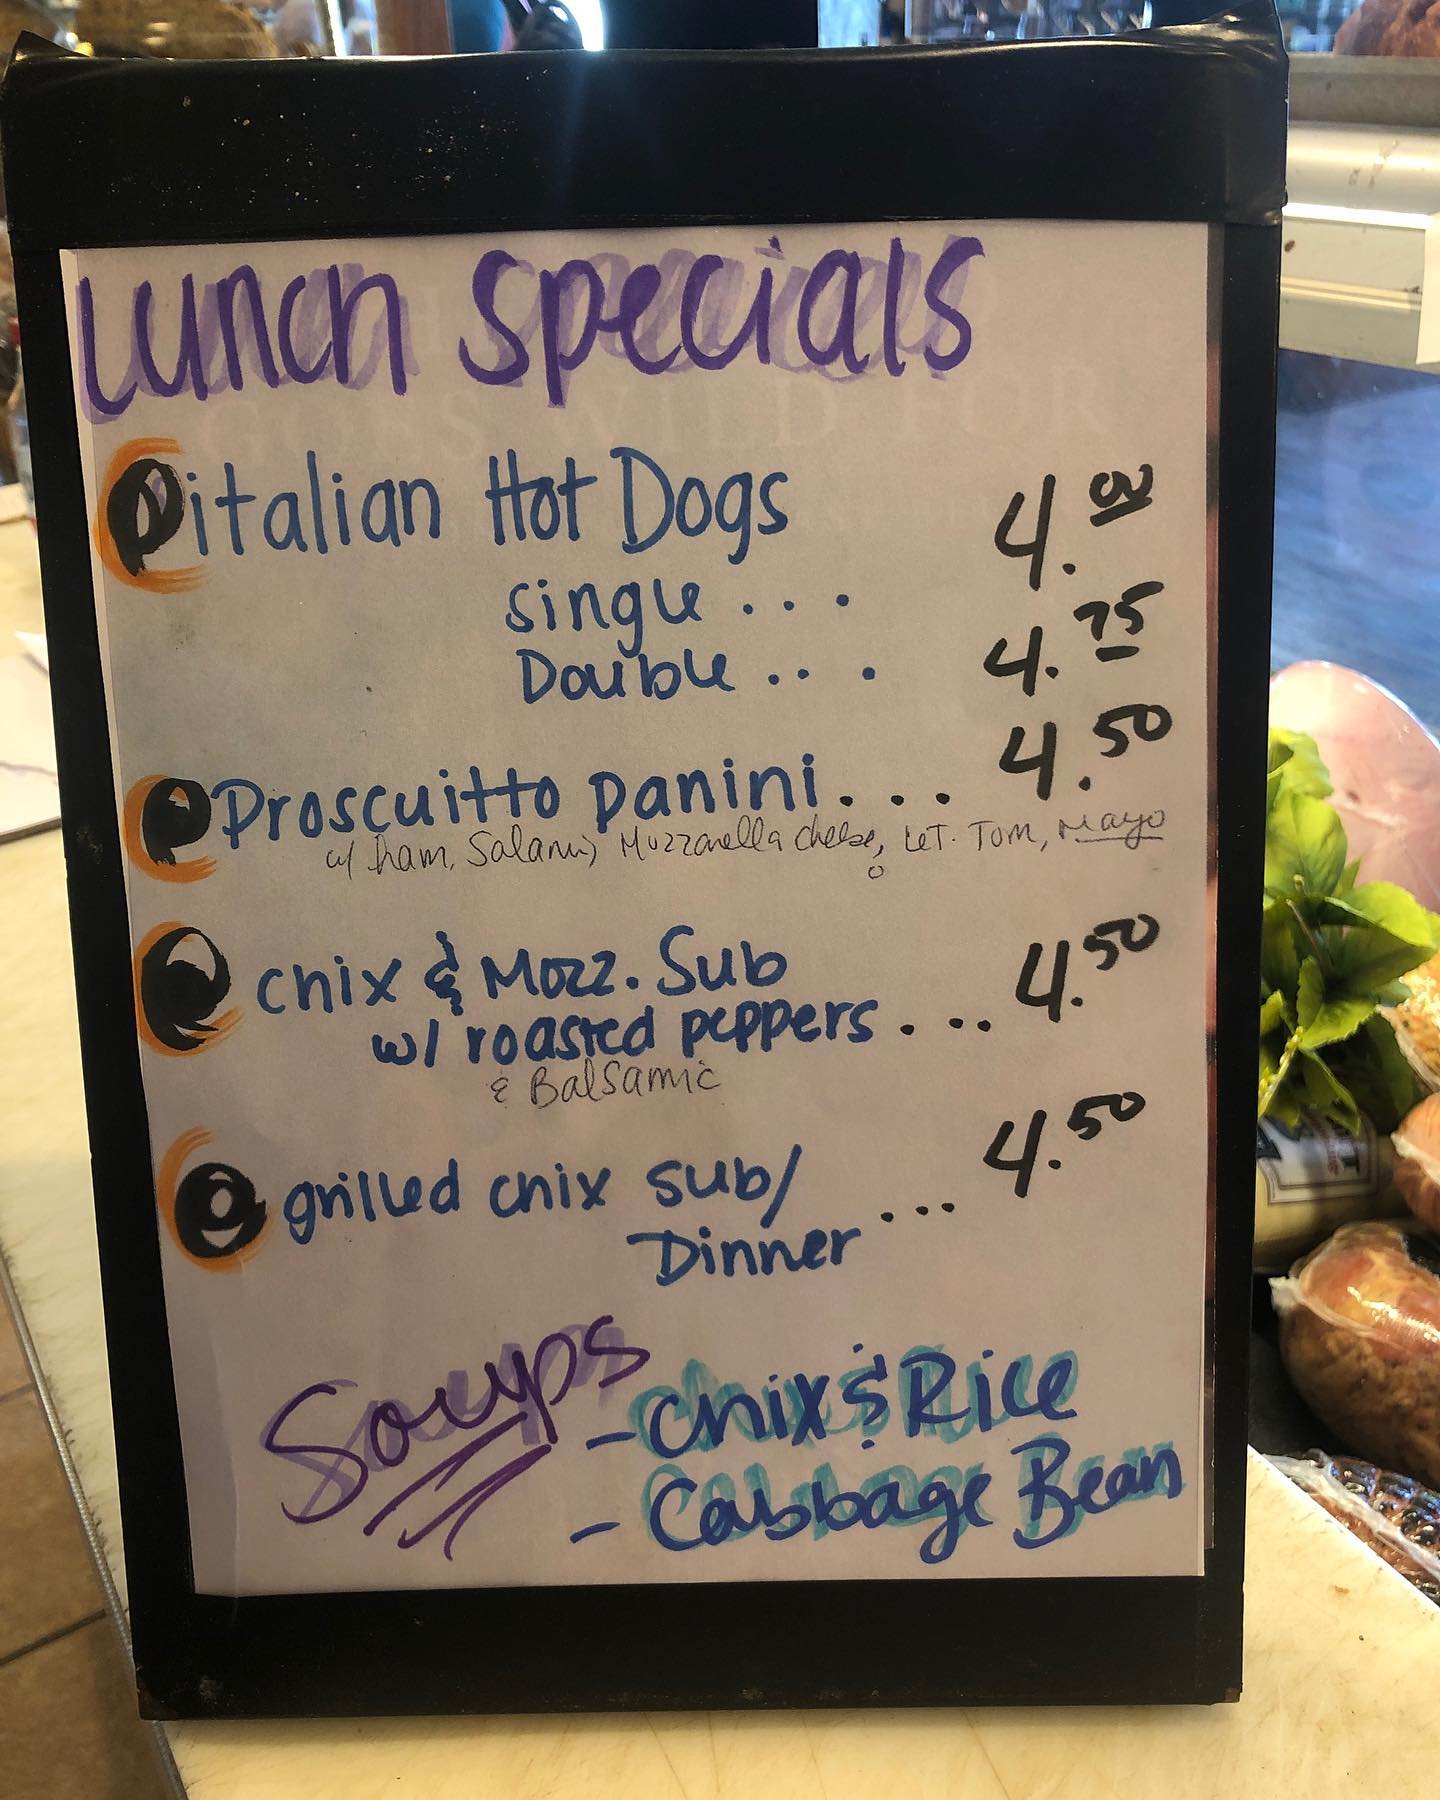 Lunch specials
italian Hot Dogs
single ... 4.00
Double ... 4.75
Proscuitto panini... 4.50
w/ ham, Salami, Mozzarella cheese, LeT. Tom, Mayo
chix & Mozz. Sub
w/ roasted peppers ... 4.50
& Balsamic
grilled chix sub/ ... 4.50
Dinner
Soups
- Chix & Rice
- Cabbage Bean
GOES WILD FOR